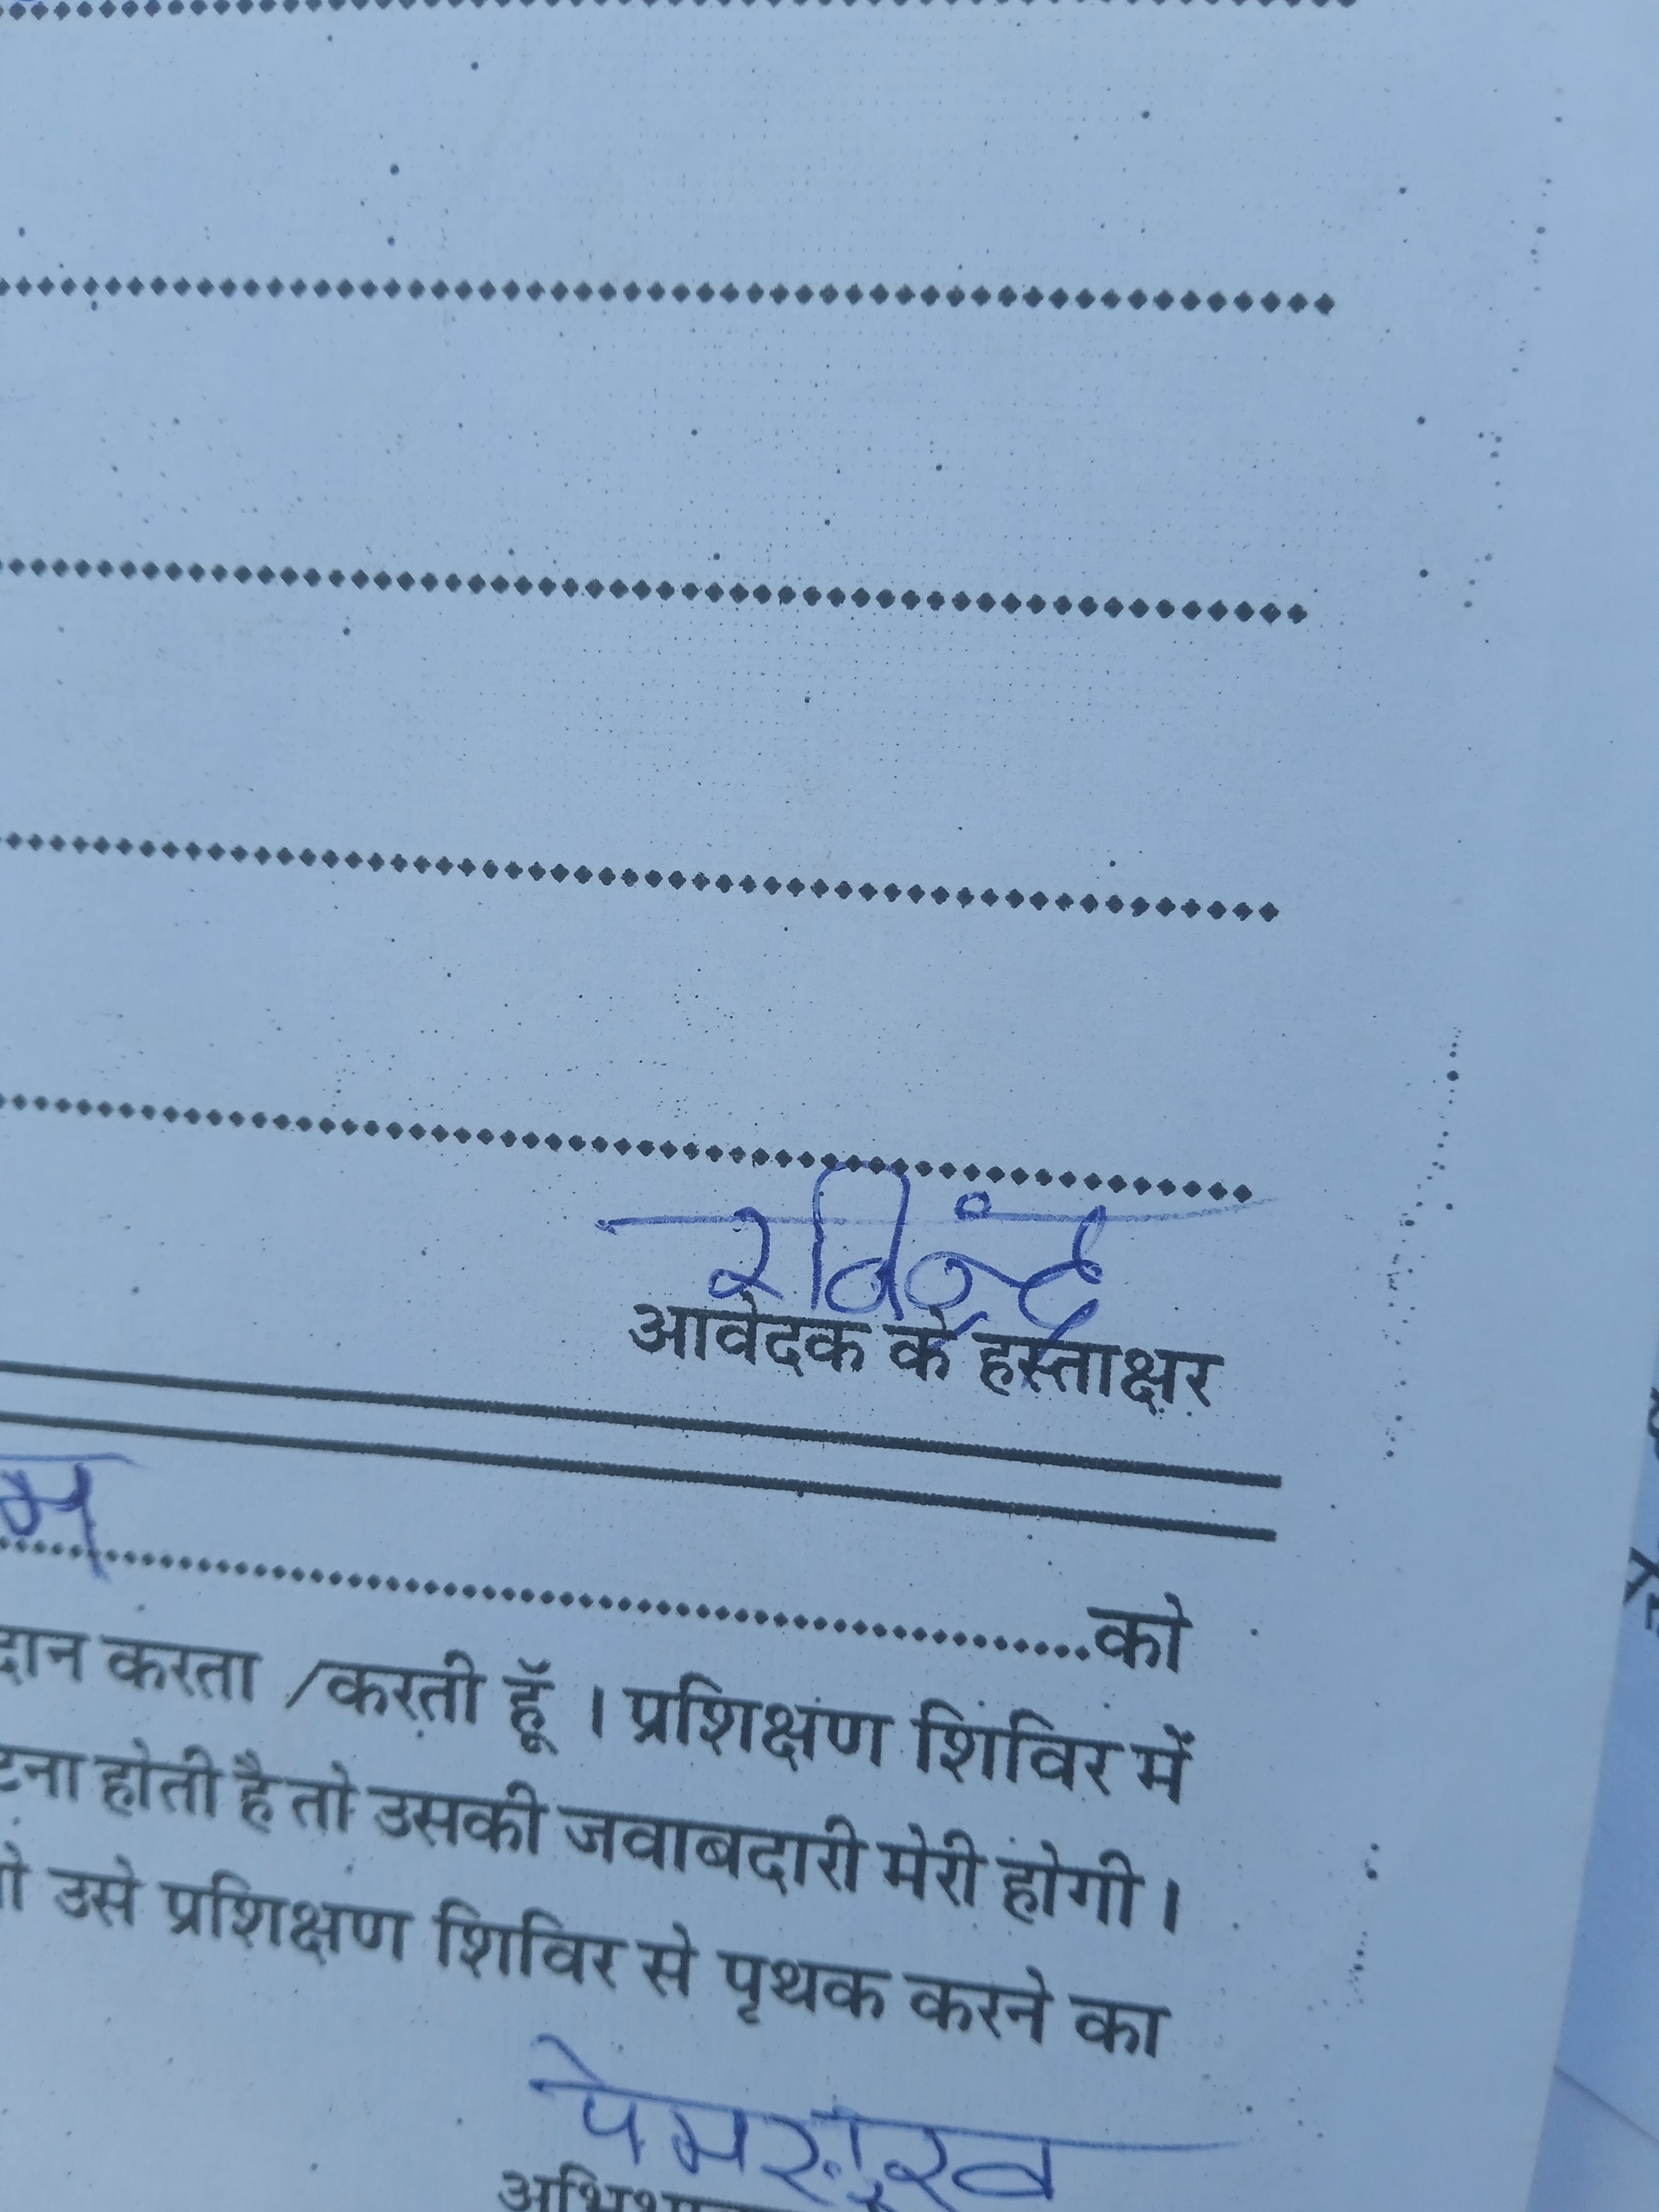 रविन्द्र
आवेदक के हस्ताक्षर
म
को
दान करता /करती हूॅ । प्रशिक्षण शिविर में
टना होती है तो उसकी जवाबदारी मेरी होगी ।
उसे प्रशिक्षण शिविर से पृथक करने का